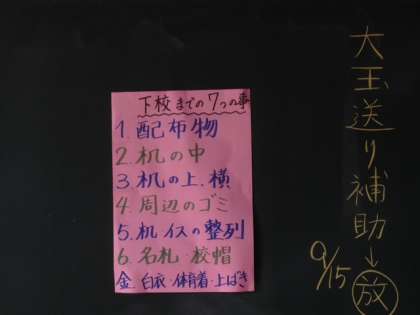 大玉送り補助→
9/15 放
下校までの7つの事
1 配布物
2.机の中
3 机の上.横
4 周辺のゴミ
5.机イスの整列
6.名札・校帽
金.白衣・体育着・上ばき